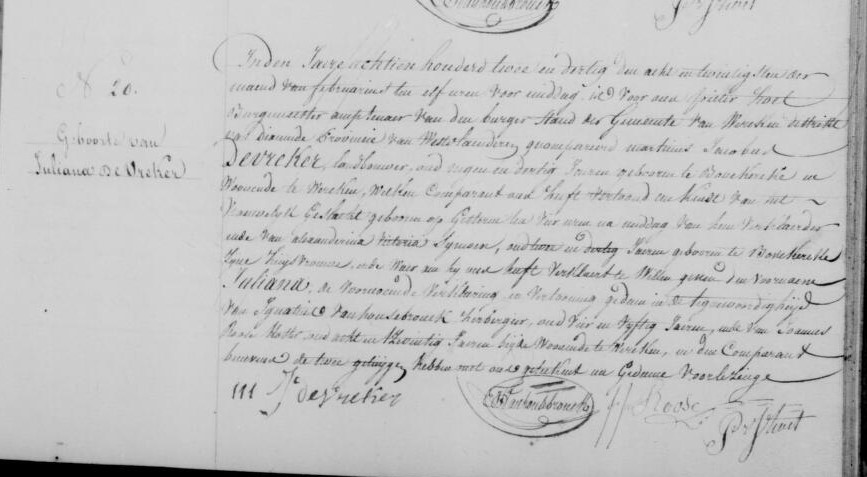 N 20.
Geboorte van
Juliana De Vreker
In den Jaere achtien honderd twee en dertig den acht en twintigsten der
maand van februarius ten elf uren voor middag is voor ons pieter
Burgmeester amptenaer van den burger stand der Gemeente van Wercken district
van dixmude Provincie van Westvlaenderen gecompareerd martinus Jacobus
Devreker, landbouwer, oud negen en dertig Jaeren geboren te Bovekercke en
Woonende te Wercken, Welken Comparant ons heeft vertoond een kindt van het
Vrouwelyk Geslacht geboren op Gisteren ten vier uren na middag van hem Verklaerder
ende van alexanderina victoria oud en dertig Jaeren geboren te Bovekercke
zyne huysvrouwe, ende Waer aen hy ons heeft Verklaert te Willen geven den Voornaem
Juliana, de Voornoemde Verklaring en Vertooning gedaen in de tegenwoordigheyd
Van Ignatius Vanhousebrouck herberger, oud vier en vyftig Jaeren, ende Van Joannes
Roose oud acht en twintig Jaeren beyde Woonende te Wercken, en den Comparant
benevens de twee getuygen hebben met ons geteekent na Gedaene Voorlezinge
De Vreker
Roose